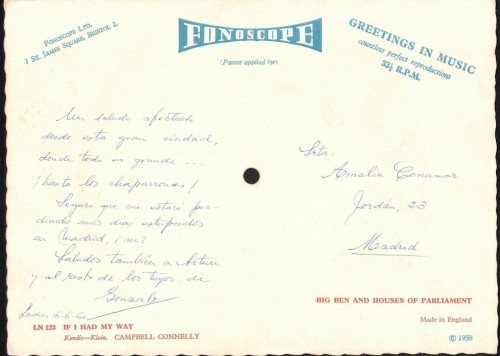 FONOSCOPE LTD.
7 ST. JAMES SQUARE, BRISTOL 2.
FONOSCOPE
(Patent applied for)
GREETINGS IN MUSIC
countless perfect reproductions
33⅓ R.P.M.
Un saludo afectuoso
desde esta gran ciudad,
donde todo es grande ...
¡hasta los chaparrones!
Seguro que me estaré per-
diendo unos días estupendos
en Madrid, ¿no?
Saludos también a
y al resto de los tuyos, de
Gonzalo
Londres 16-6-60
Srta.
Amalia
Jordán, 23
Madrid
LN 123 IF I HAD MY WAY
Kendis—Klein. CAMPBELL CONNELLY
BIG BEN AND HOUSES OF PARLIAMENT
Made in England
© 1958